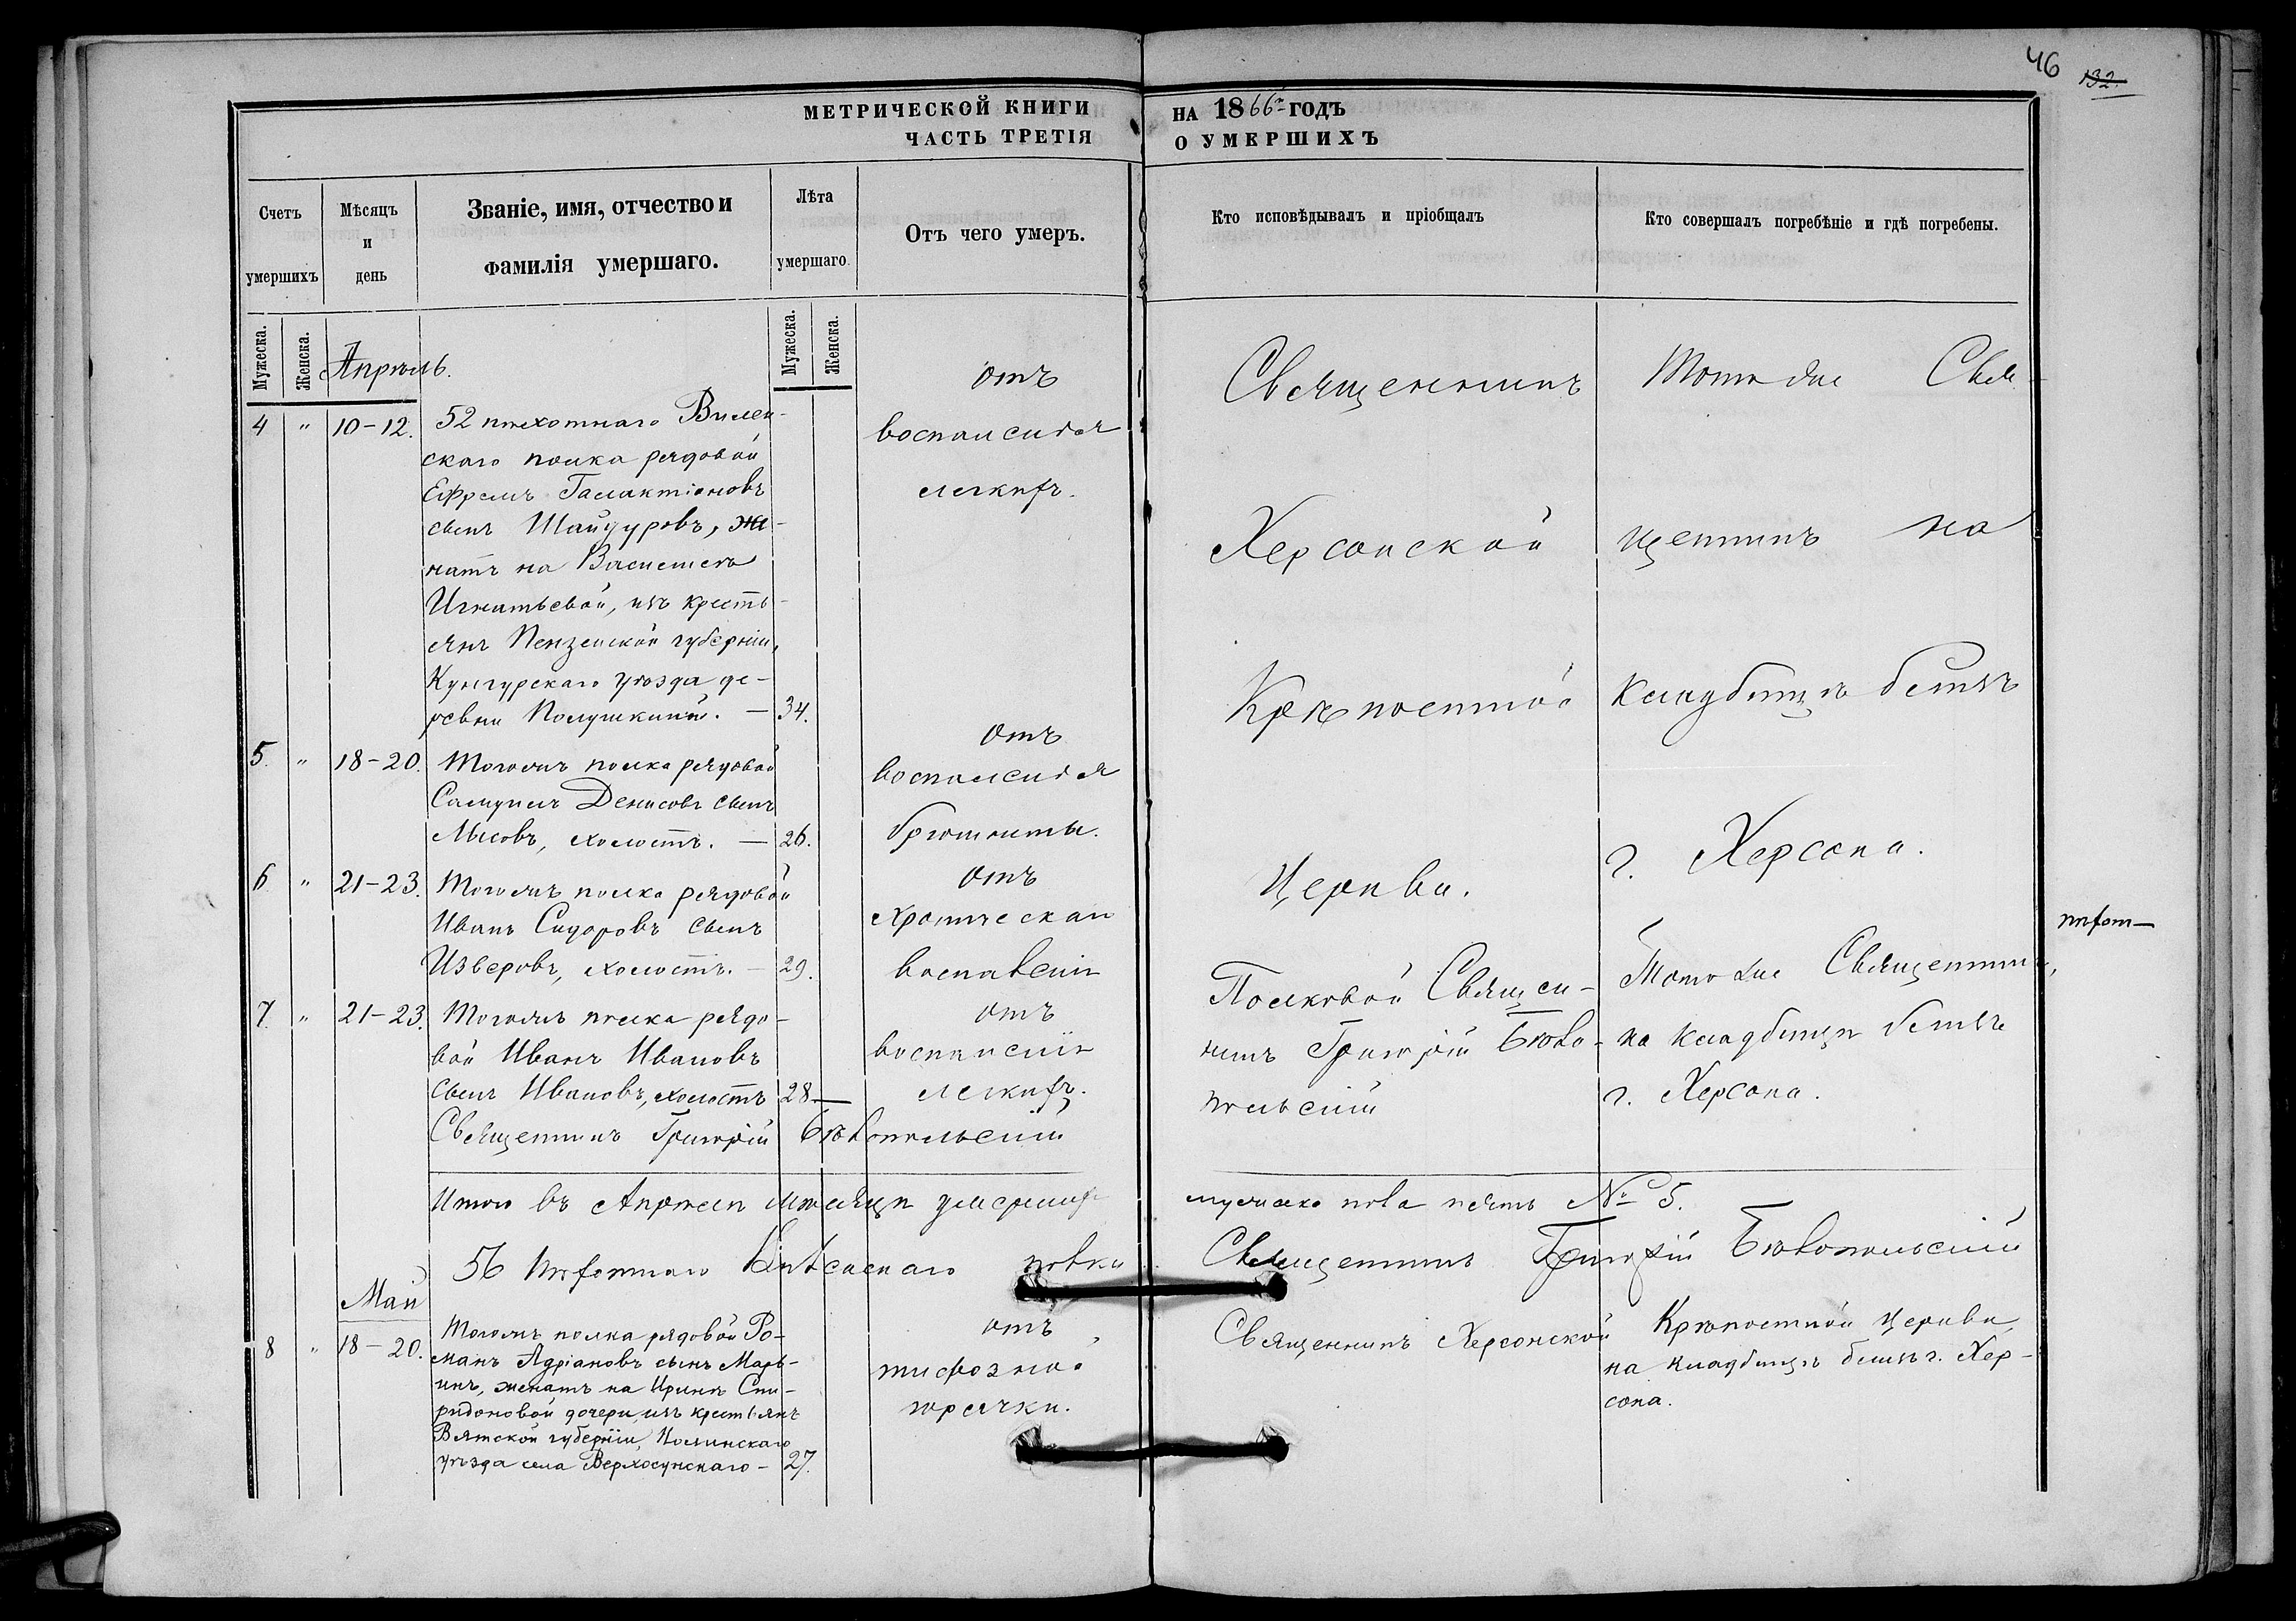 46
132.
МЕТРИЧЕСКОЙ КНИГИ НА 1866 ГОДЪ
ЧАСТЬ ТРЕТІЯ О УМЕРШИХЪ
Счетъ умершихъ
Мѣсяцъ и день
Званіе, имя, отчество и фамилія умершаго.
Лѣта умершаго.
Отъ чего умеръ.
Кто исповѣдывалъ и пріобщалъ
Кто совершалъ погребѣніе и гдѣ погребены.
Мужеска.
Женска.
Мужеска.
Женска.
Апрѣль.
4 " 10-12.
52 пѣхотнаго Вилен-
скаго полка рядовой
Ефремъ Галактіоновъ
сынъ Шайдуровъ, же-
натъ на
Игнатьевой, изъ кресть-
янъ Пензенской губерніи,
Кунгурскаго уѣзда де-
ревни Полушкиной. — 34.
отъ
воспаленія
легкихъ.
Священникъ
Херсонской
Крѣпостной
Церкви.
Тотъ же Свя-
щенникъ на
кладбищѣ близъ
г. Херсона.
5. " 18-20.
Тогожъ полка рядовой
Самуилъ Денисовъ сынъ
Лысовъ, холостъ. — 26.
отъ
воспаленія
брюшины.
6. " 21-23.
Тогожъ полка рядовой
Иванъ Сидоровъ сынъ
Изверовъ, холостъ. — 29.
отъ
хроническаго
воспаленія
7. " 21-23.
Тогожъ полка рядо-
вой Иванъ Ивановъ
сынъ Ивановъ, холостъ 28
отъ
воспаленія
легкихъ.
Полковой Священ-
никъ Григорій Бѣло-
польскій
Тотъ же Священникъ,
на кладбищѣ близъ
г. Херсона.
Священникъ Григорій Бѣлопольскій
Итого въ Апрѣлѣ мѣсяцѣ умершихъ
мужеска пола пять № 5.
56 пѣхотнаго полка
Священникъ Григорій Бѣлопольскій
Май
8 " 18-20.
Тогожъ полка рядовой Ро-
манъ Адріановъ сынъ Марь-
инъ, женатъ на Иринѣ Спи-
ридоновой дочери, изъ крестьянъ
Вятской губерніи, Нолинскаго
уѣзда села Верхосунскаго — 27.
отъ
тифозной
горячки.
Священникъ Херсонской
Крѣпостной Церкви,
на кладбищѣ близъ г. Хер-
сона.